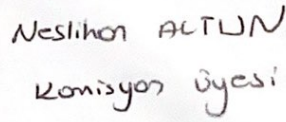 Neslihan ALTUN
Komisyon üyesi